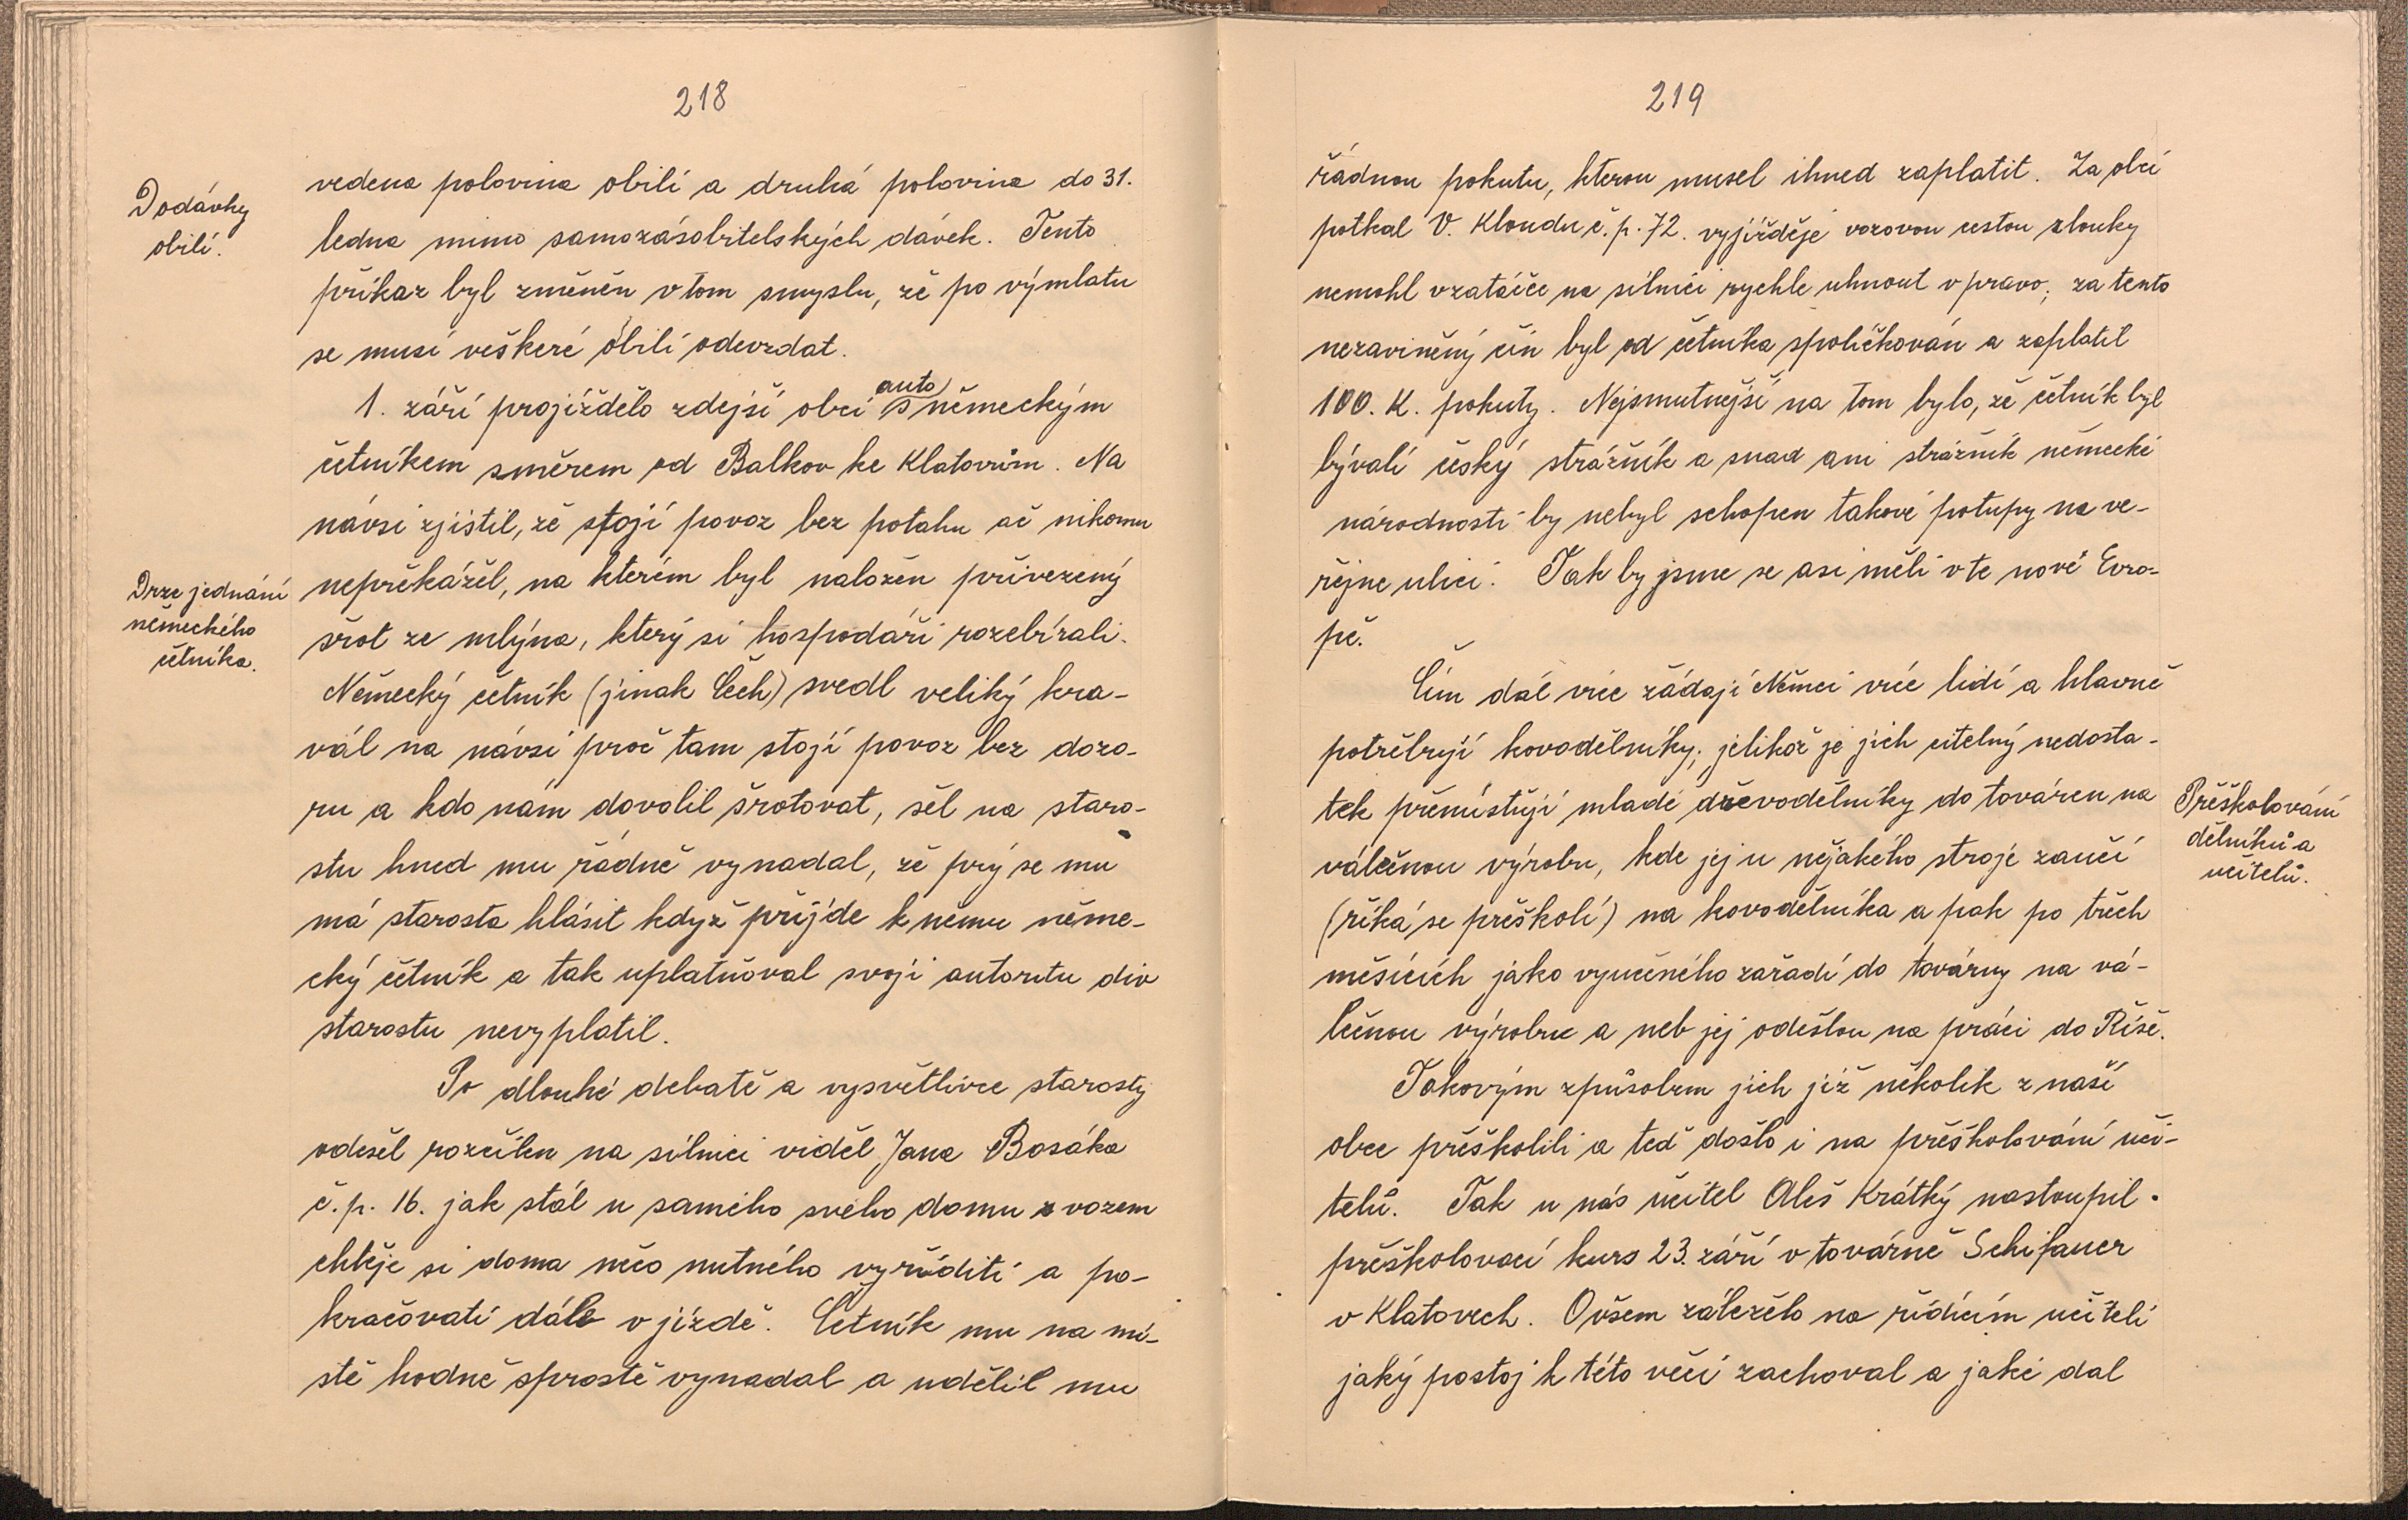 218
Dodávky
obilí.
vedena polovina obilí a druhá polovina do 31.
ledna mimo samozásobitelských dávek. Tento
příkaz byl změněn v tom smyslu, že po výmlatu
se musí veškeré obilí odevzdat.
auto
1. září projíždělo zdejší obcí s německým
četníkem směrem od Balkov ke Klatovům. Na
návsi zjistil, že stojí povoz bez potahu ač nikomu
Drze jednání
německého
četníka.
nepřekážel, na kterém byl naložen přivezený
šrot ze mlýna, který si hospodáři rozebírali.
Německý četník (jinak Čech) svedl veliký kra-
vál na návsi proč tam stojí povoz bez dozo-
ru a kdo nám dovolil šrotovat, šel na staro-
stu hned mu řádně vynadal, že prý se mu
má starosta hlásit když přijde k němu něme-
cký četník a tak uplatňoval svoji autoritu div
starostu nevyplatil.
Po dlouhé debatě a vysvětlivce starosty
odešel rozčilen na silnici viděl Jana Bosáka
č.p. 16. jak stál u samého svého domu s vozem
chtěje si doma něco nutného vyříditi a po-
kračovati dále v jízdě. Četník mu na mí-
stě hodně sprostě vynadal a udělil mu
219
řádnou pokutu, kterou musel ihned zaplatit. Za obcí
potkal V. Kloudu č.p. 72. vyjížděje vozovou cestou z louky
nemohl v zatáčce na silnici rychle uhnout v pravo; za tento
nezaviněný čin byl od četníka spoličkován a zaplatil
100. K. pokuty. Nejsmutnější na tom bylo, že četník byl
bývalí český strážník a snad ani strážník německé
národnosti by nebyl schopen takové potupy na ve-
řejne ulici. Tak by jsme se asi měli v te nové Evro-
pě.
Čím dál více žádají Němci více lidí a hlavně
potřebují kovodělníky; jelikož je jich citelný nedosta-
tek přemísťují mladé dřevodělníky do továren na
válečnou výrobu, kde jej u nějakého stroje zaučí
(říká se přeškolí) na kovodělníka a pak po třech
měsících jako vyučeného zařadí do továrny na vá-
lečnou výrobu a neb jej odešlou na práci do Říše.
Přeškolování
dělníků a
učitelů.
Takovým způsobem jich již několik z naší
obce přeškolili a teď došlo i na přeškolování uči-
telů. Tak u nás učitel Aleš Krátký nastoupil
přeškolovací kurs 23. září v továrně Schifauer
v Klatovech. Ovšem záleželo na řídícím učiteli
jaký postoj k této věci zachoval a jaké dal